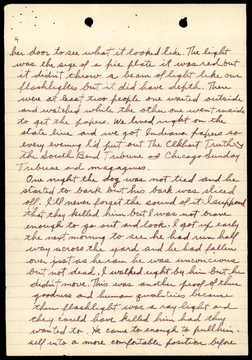 4
her door to see what it looked like. The light
was the size of a pie plate it was red but
it didn't throw a beam of light like our
flashlights but it did have depth. There
were at least two people one waited outside
and watched while the other one went inside
to get the papers. We lived right on the
state line and we got Indiana papers so
every evening I'd put out The Elkhart Truth,
the South Bend Tribune and Chicago Sunday
Tribune and magazines.
One night the dog was not tied and he
started to bark but his bark was sliced
off. I'll never forget the sound of it. I supposed
that they killed him but I was not brave
enough to go out and look. I got up early
the next morning to see he had run half
way across the yard and he had fallen
over just as he ran he was unconcious
but not dead. I walked right by him but he
didn't move. This was another proof of their
goodness and human qualities because
their flashlight was a ray light and
they could have killed him had they
wanted to. He came to enough to pull him-
self into a more comfortable position before